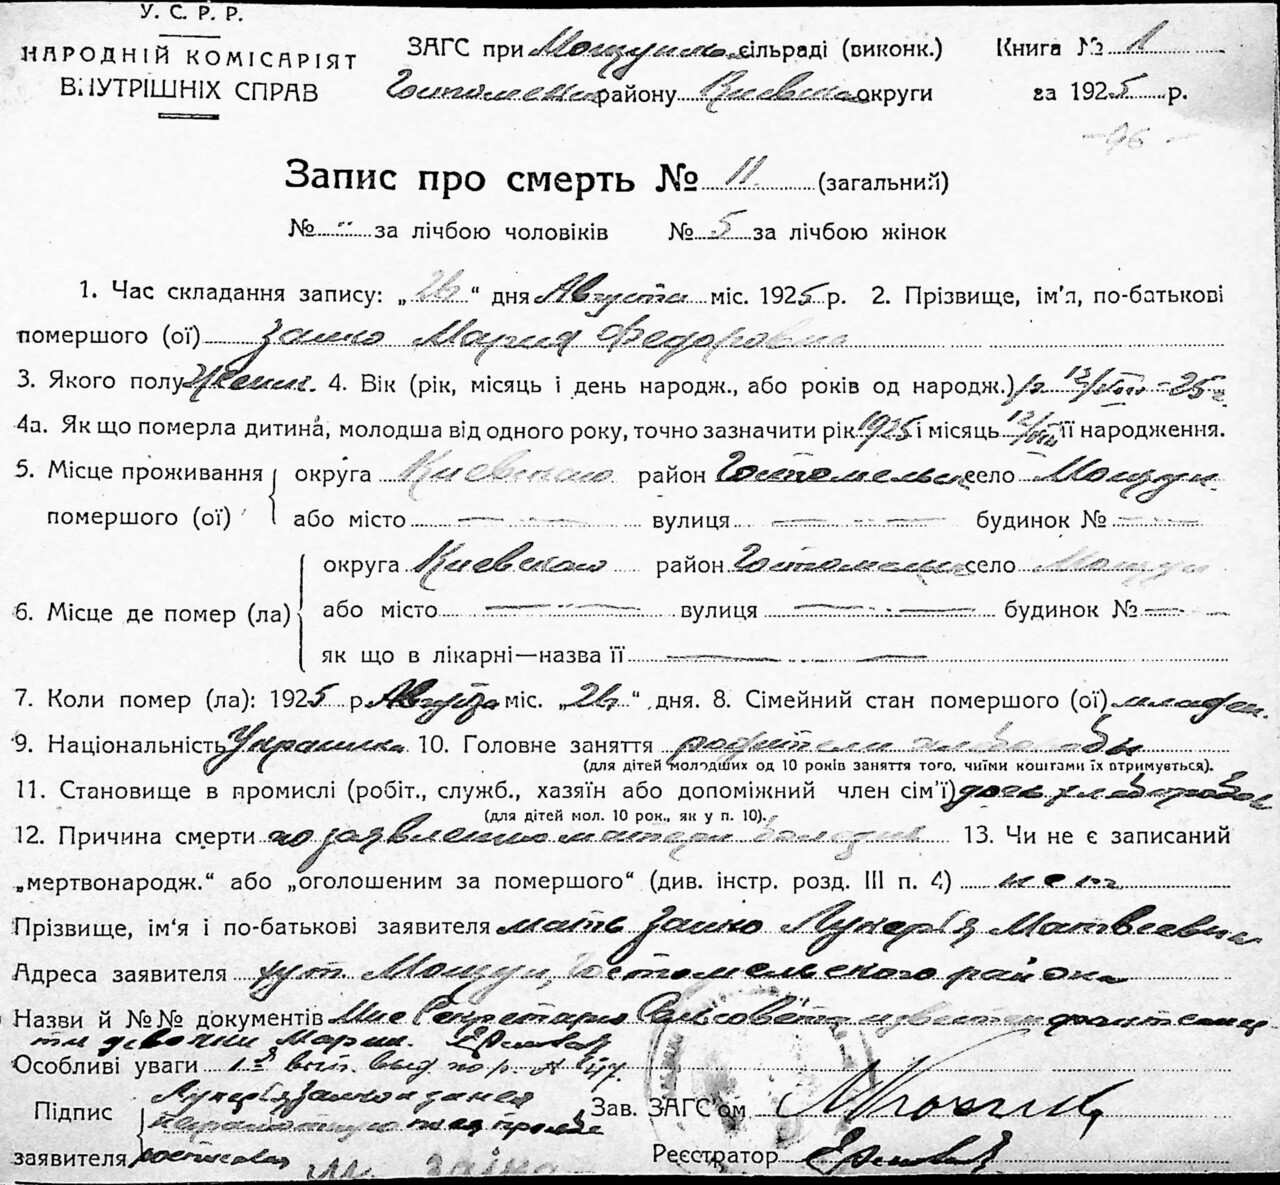 У. С. Р. Р.
НАРОДНІЙ КОМІСАРІЯТ
ВНУТРІШНІХ СПРАВ
ЗАГС при Мощунск сільраді (виконк.) Книга № 1
Гостомельск району Киевской округи за 1925 р.
-96-
Запис про смерть № 11 (загальний)
№ " за лічбою чоловіків № 5 за лічбою жінок
1. Час складання запису: „26“ дня Августа міс. 1925 р. 2. Прізвище, ім'я, по-батькові
помершого (ої) Заико Мария Федоровна
3. Якого полу женск. 4. Вік (рік, місяць і день народж., або років од народж.) р. 13/VIII-25 г.
4а. Як що померла дитина, молодша від одного року, точно зазначити рік 1925 і місяць 12/VIII її народження.
5. Місце проживання помершого (ої) округа Киевская район Гостомельск село Мощун
або місто — — вулиця — — будинок № — —
6. Місце де помер (ла) округа Киевская район Гостомельск село Мощун
або місто — — вулиця — — будинок № — —
як що в лікарні—назва її — —
7. Коли помер (ла): 1925 р. Августа міс. „26“ дня. 8. Сімейний стан помершого (ої) младен.
9. Національність Украинка 10. Головне заняття родители хлеборобы
(для дітей молодших од 10 років заняття того, чиїми коштами їх втримується).
11. Становище в промислі (робіт., служб., хазяїн або допоміжний член сім'ї) дочь хлебороба
(для дітей мол. 10 рок., як у п. 10).
12. Причина смерти по заявлению матери 13. Чи не є записаний
„мертвонародж.“ або „оголошеним за помершого“ (див. інстр. розд. III п. 4) нет
Прізвище, ім'я і по-батькові заявителя мать Заико Лукерія Матвеевна
Адреса заявителя хут. Мощун, Гостомельского района
Назви й №№ документів Мне Секретарю Сельсовета известен факт смер
ти девочки Марии.
Особливі уваги 1й вып. выд. по р. №
Підпис заявителя Лукерія Заико а за нея
неграмотную по ея просьбе
росписался
Зав. ЗАГС'ом
Реєстратор